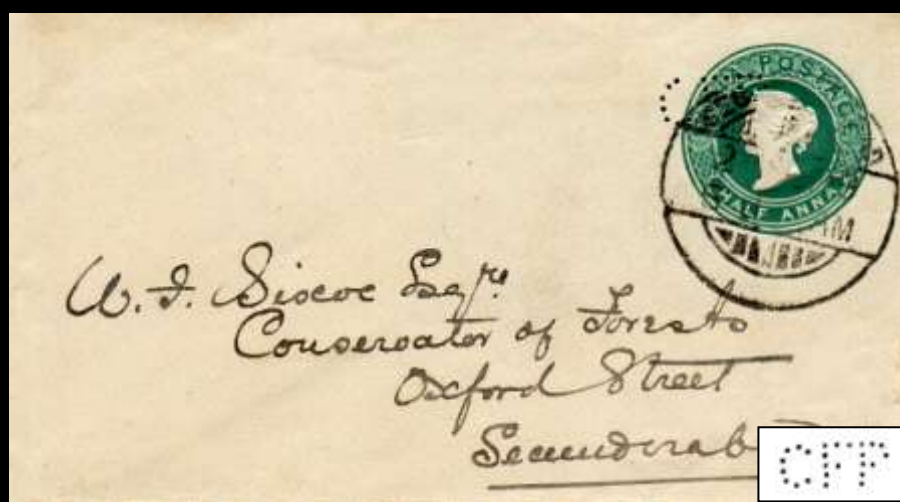 POSTAGE
HALF ANNA
W. F. Biscoe Esqre
Conservator of Forests
Oxford Street
CFP